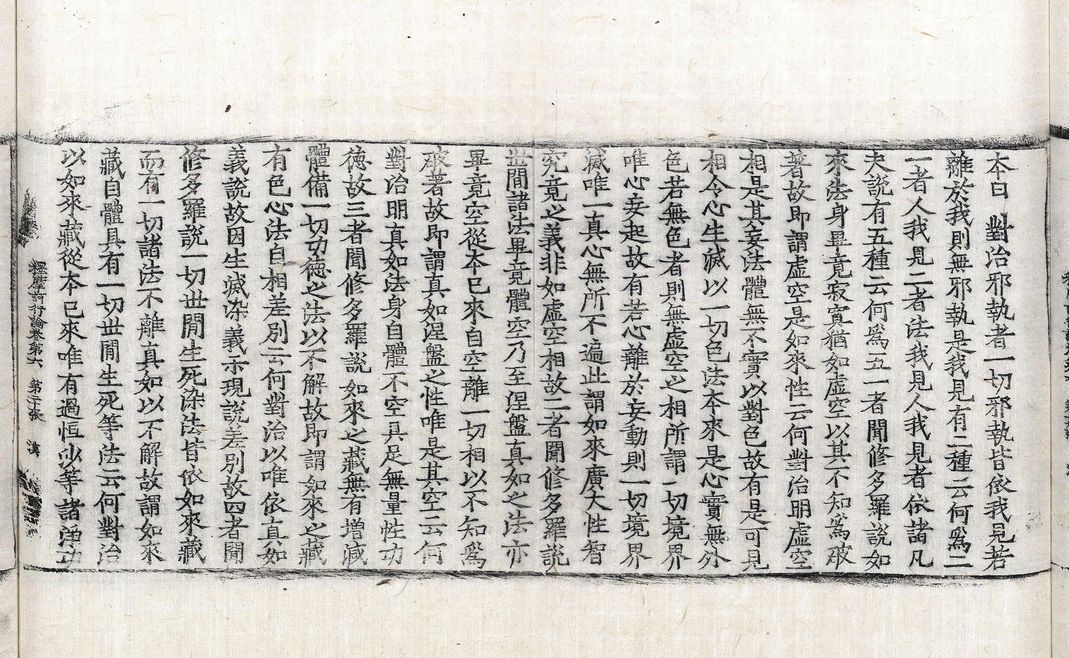 本曰 對治邪執者一切邪執皆依我見若
離於我則無邪執是我見有二種云何爲二
一者人我見二者法我見人我見者依諸凡
夫說有五種云何爲五一者聞修多羅說如
來法身畢竟寂寞猶如虛空以其不知爲破
著故即謂虛空是如來性云何對治明虛空
相是其妄法體無不實以對色故有是可見
相令心生滅以一切色法本來是心實無外
色若無色者則無虛空之相所謂一切境界
唯心妄起故有若心離於妄動則一切境界
滅唯一真心無所不遍此謂如來廣大性智
究竟之義非如虛空相故二者聞修多羅說
世間諸法畢竟體空乃至涅盤真如之法亦
畢竟空從本已來自空離一切相以不知爲
破著故即謂真如涅盤之性唯是其空云何
對治明真如法身自體不空具足無量性功
德故三者聞修多羅說如來之藏無有增減
體備一切功德之法以不解故即謂如來之藏
有色心法自相差別云何對治以唯依真如
義說故因生滅染義示現說差別故四者聞
修多羅說一切世間生死染法皆依如來藏
而有一切諸法不離真如以不解故謂如來
藏自體具有一切世間生死等法云何對治
以如來藏從本已來唯有過恒沙等諸淨功
釋摩訶衍論卷第六 第 張